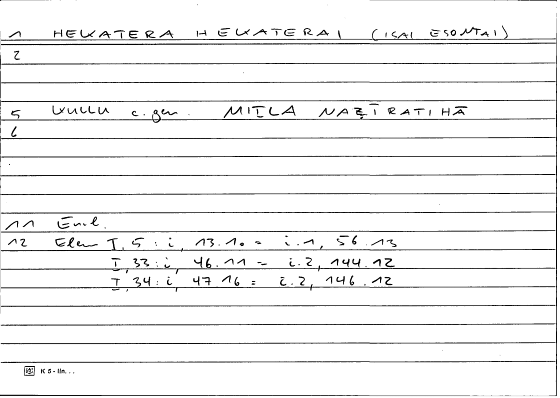 1 HEKATERA HEKATERAI (ISAI ESONTAI)
2
5 KULLU c. gen. MIṮLA NAẒĪRATIHĀ
6
11 Eucl.
12 Elem I, 5 : i, 13.10 = i.1, 56.13
I, 33 : i, 46.11 = i.2, 144.12
I, 34 : i, 47.16 = i.2, 146.12